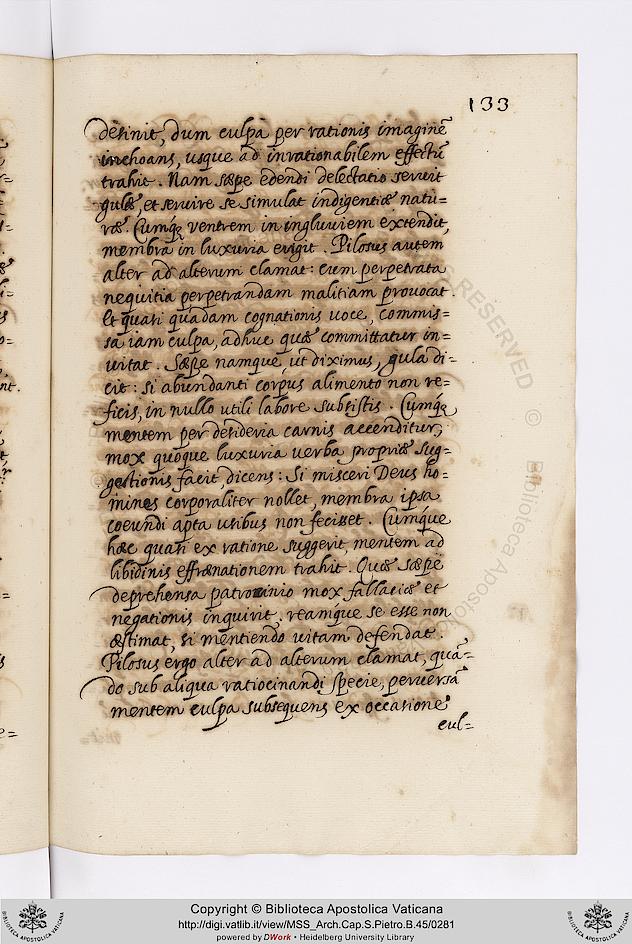 133
desinit, dum culpa per rationis imaginē
inchoans, usque ad inrationabilem effectū
trahit. Nam sæpe edendi delectatio servit
gulæ, et servire se simulat indigentiæ natu=
ræ. Cumq; ventrem in ingluviem extendit,
membra in luxuria erigit. Pilosus autem
alter ad alterum clamat: cum perpetrata
nequitia perpetrandam malitiam provocat.
Et quasi quadam cognationis voce, commis=
sa iam culpa, adhuc quæ committatur in=
vitat. Sæpe namque, ut diximus, gula di=
cit: si abundanti corpus alimento non re=
ficis, in nullo utili labore subsistis. Cumq;
mentem per desideria carnis accenditur,
mox quoque luxuria verba propriæ sug=
gestionis facit, dicens: Si misceri Deus ho=
mines corporaliter nollet, membra ipsa
coeundi apta usibus non fecisset. Cumque
hæc quasi ex ratione suggerit, mentem ad
libidinis effrænationem trahit. Quæ sæpe
deprehensa patrocinio mox fallaciæ et
negationis inquirit, reamque se esse non
æstimat, si mentiendo vitam defendat.
Pilosus ergo alter ad alterum clamat, quā=
do sub aliqua ratiocinandi specie, perversā
mentem culpa subsequens ex occasione
cul=
RESERVED © Biblioteca Aposto
Copyright © Biblioteca Apostolica Vaticana
http://digi.vatlib.it/view/MSS_Arch.Cap.S.Pietro.B.45/0281
powered by DWork • Heidelberg University Library